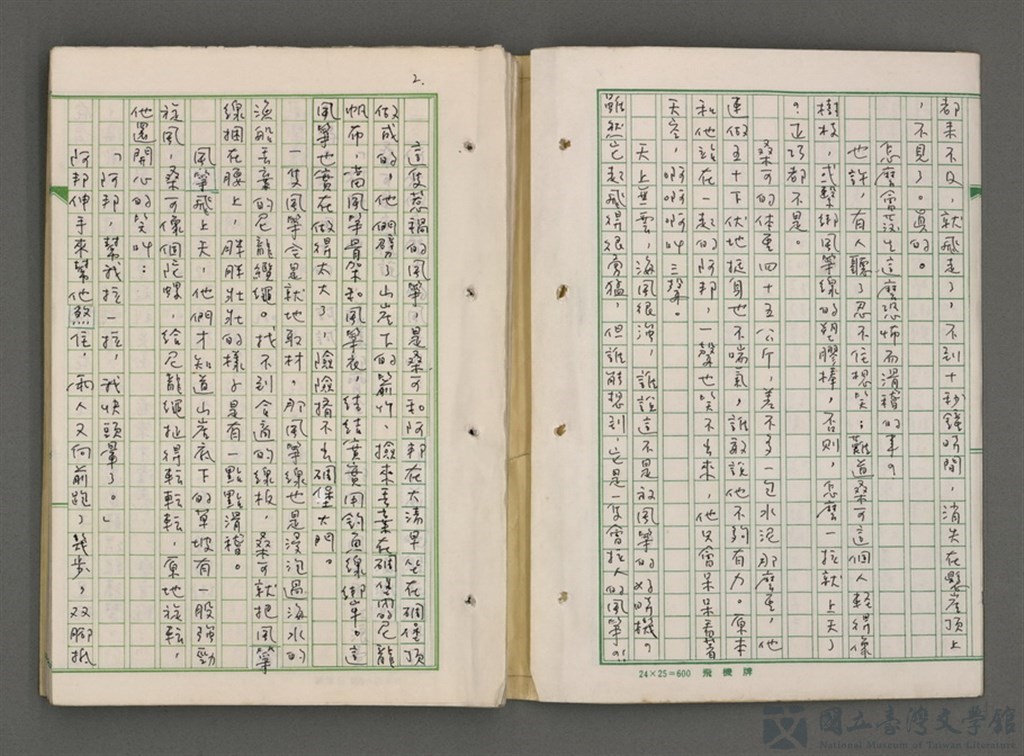 都來不及，就飛走了，不到十秒鐘時間，消失在懸崖頂上
，不見了。真的。
怎麼會發生這麼恐怖而滑稽的事？
也許，有人聽了忍不住想笑；難道桑可這個人輕得像
樹枝，或擊綁風箏線的塑膠棒，否則，怎麼一拉就上天了
。正巧都不是。
桑可的体重四十五公斤，差不多一包水泥那麼重，他
連做五十下伏地挺身也不喘氣，誰敢說他不夠有力。原本
和他站在一起的阿邦，一聲也笑不出來，他只會呆呆看著
天空，啊啊啊叫三聲。
天上無雲，海風很強，誰說這不是放風箏的好時機？
雖然它起飛得很勇猛，但誰能想到，它是一隻會拉人的風箏？！
2.
這隻惹禍的風箏，是桑可和阿邦在大清早坐在碉堡頂
做成的，他們劈了山崖下的箭竹、撿來丟棄在碉堡內的尼龍
帆布，當風箏骨架和風箏衣，結結實實用釣魚線綁牢。這
風箏也實在做得太大了，險險擠不出碉堡大門。
一隻風箏全是就地取材。那風箏線也是浸泡過海水的
漁船丟棄的尼龍纜繩。找不到合適的線板，桑可就把風箏
線捆在腰上，胖胖壯壯的樣子是有一點點滑稽。
風箏飛上天，他們才知道山崖底下的草坡有一股強勁
旋風，桑可像個陀螺，給尼龍繩扯得轉轉轉，原地旋轉，
他還開心的笑叫：
「阿邦，幫我拉一拉，我快頭暈了。」
阿邦伸手來幫他煞住，兩人又向前跑了幾步，双腳抵
24×25=600 飛機牌
國立臺灣文學館
National Museum of Taiwan Literature